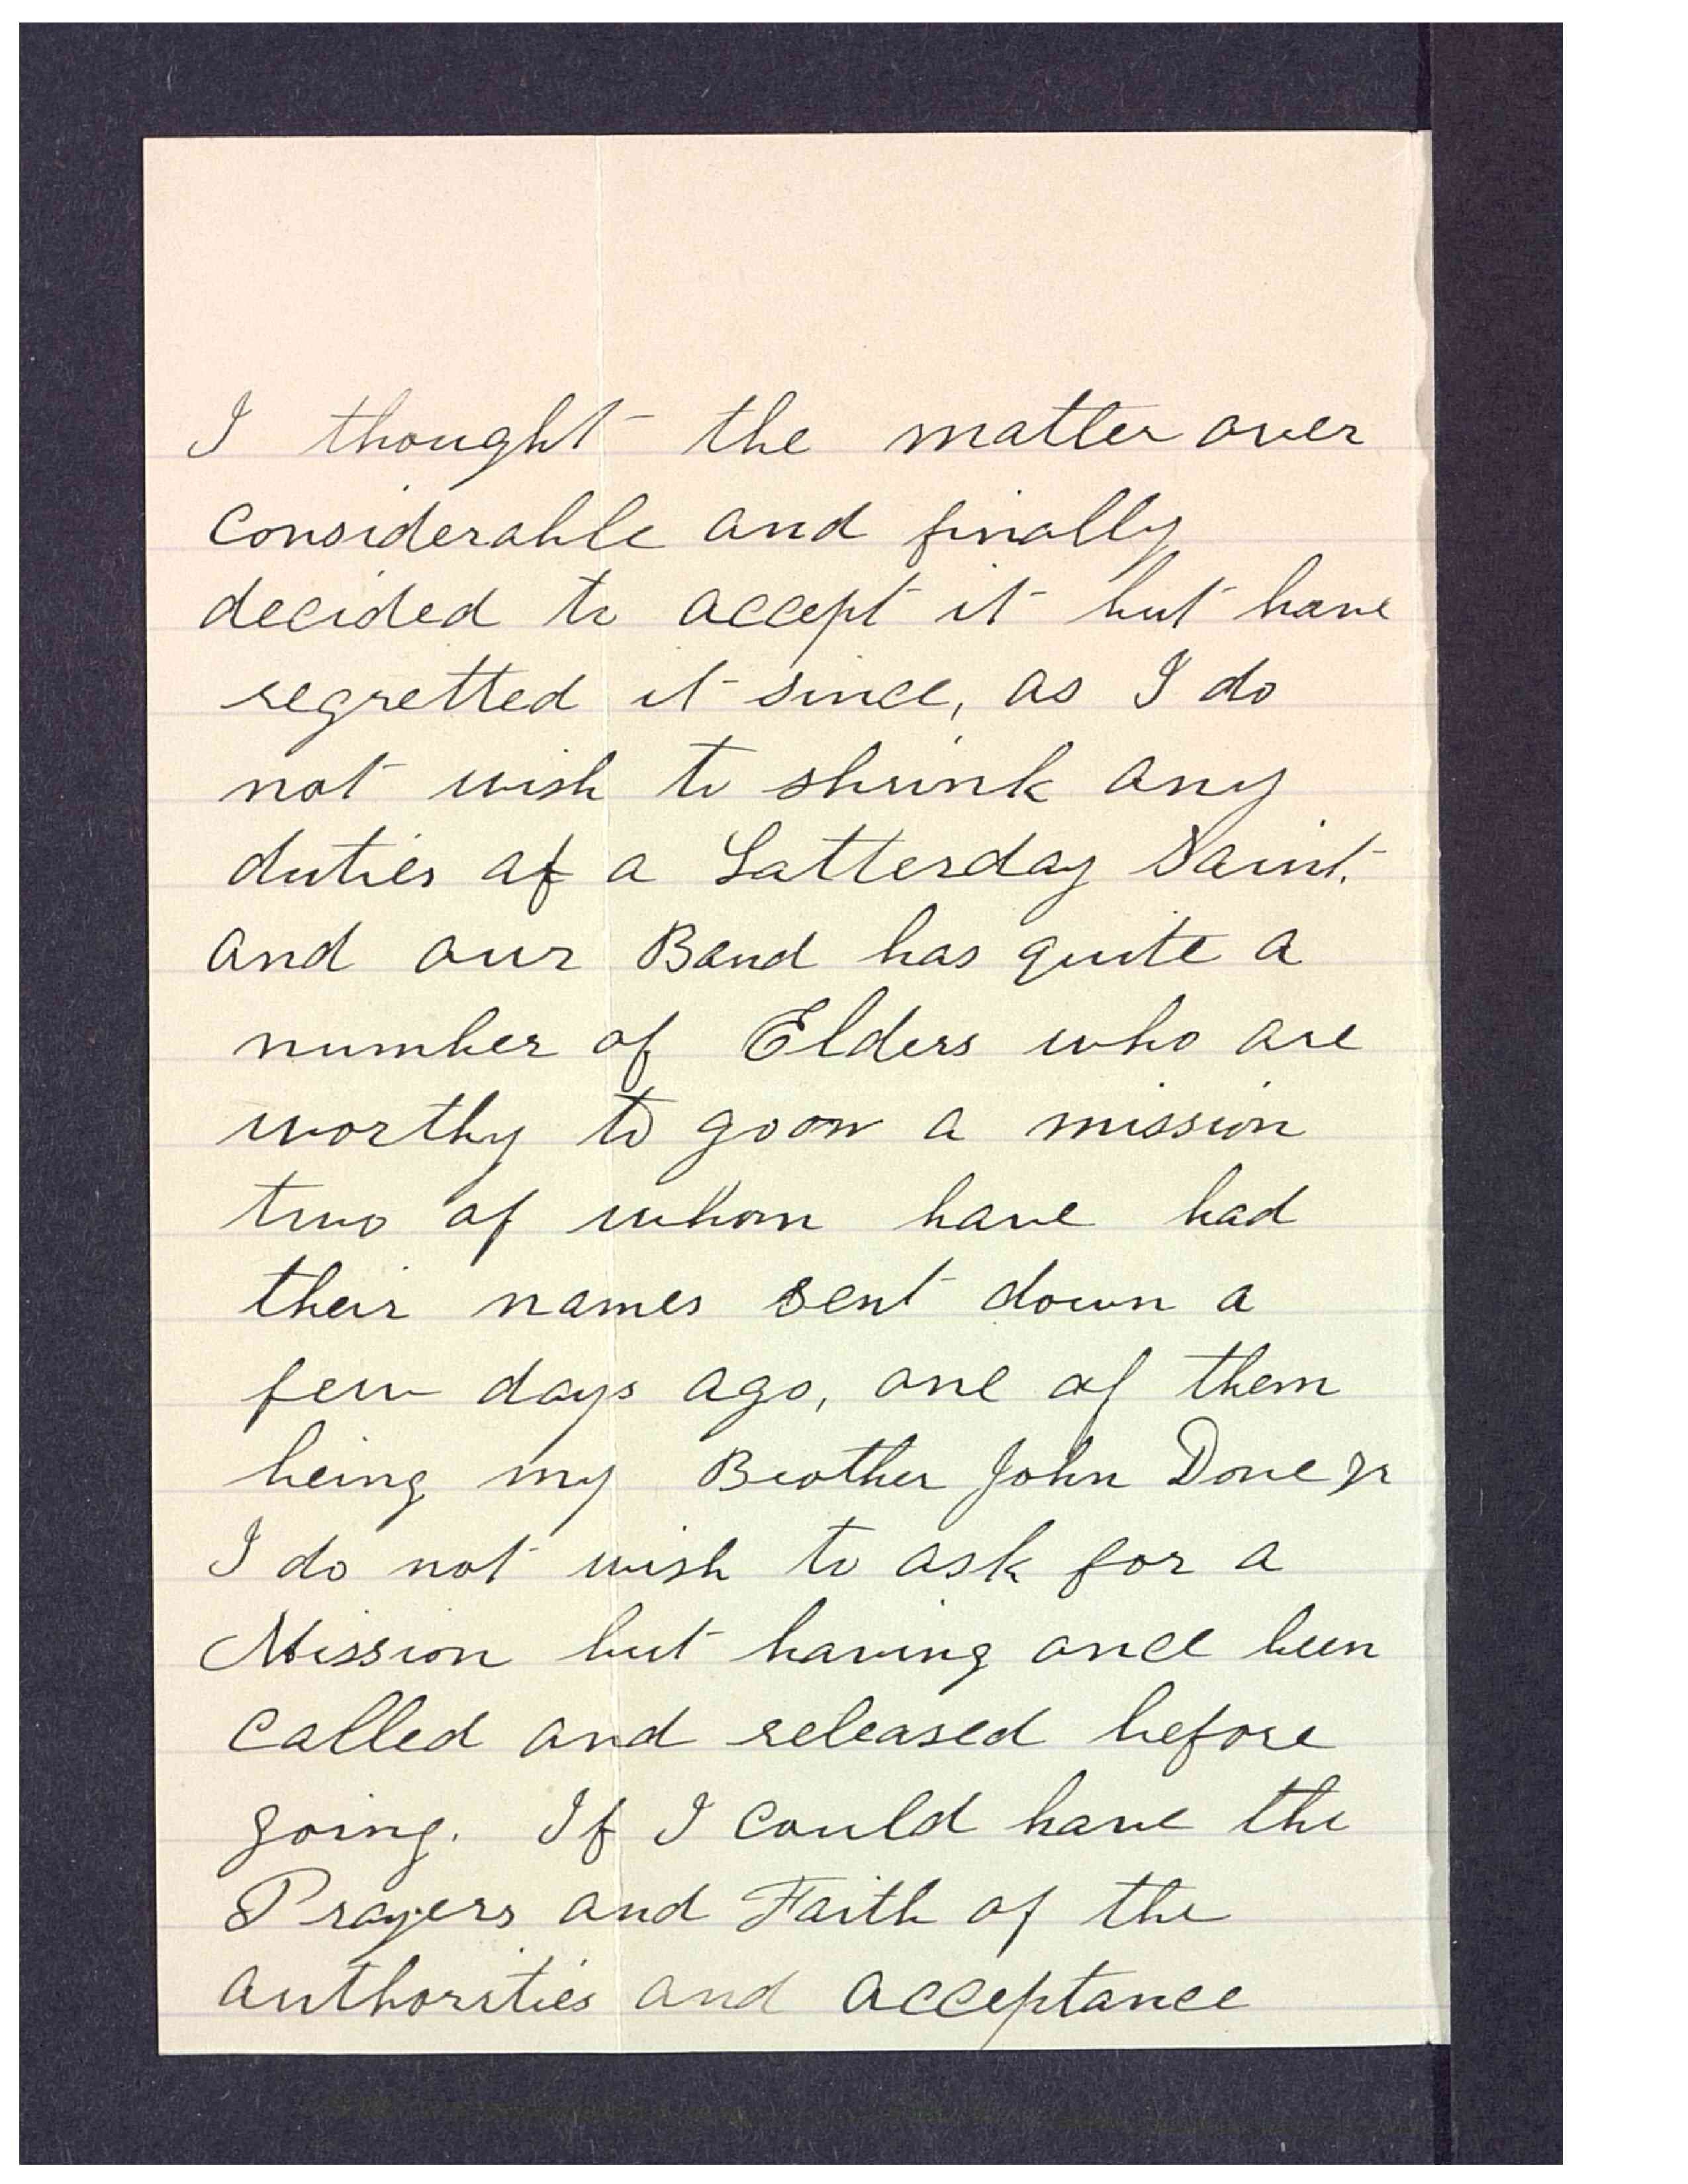 I thought the matter over
considerable and finally
decided to accept it but have
regretted it since, as I do
not wish to shrink any
duties of a Latterday Saint.
and our Band has quite a
number of Elders who are
worthy to goon a mission
two of whom have had
their names sent down a
few days ago, one of them
being my Brother John Done Jr
I do not wish to ask for a
Mission but having once been
called and released before
going. If I could have the
Prayers and Faith of the
authorities and acceptance